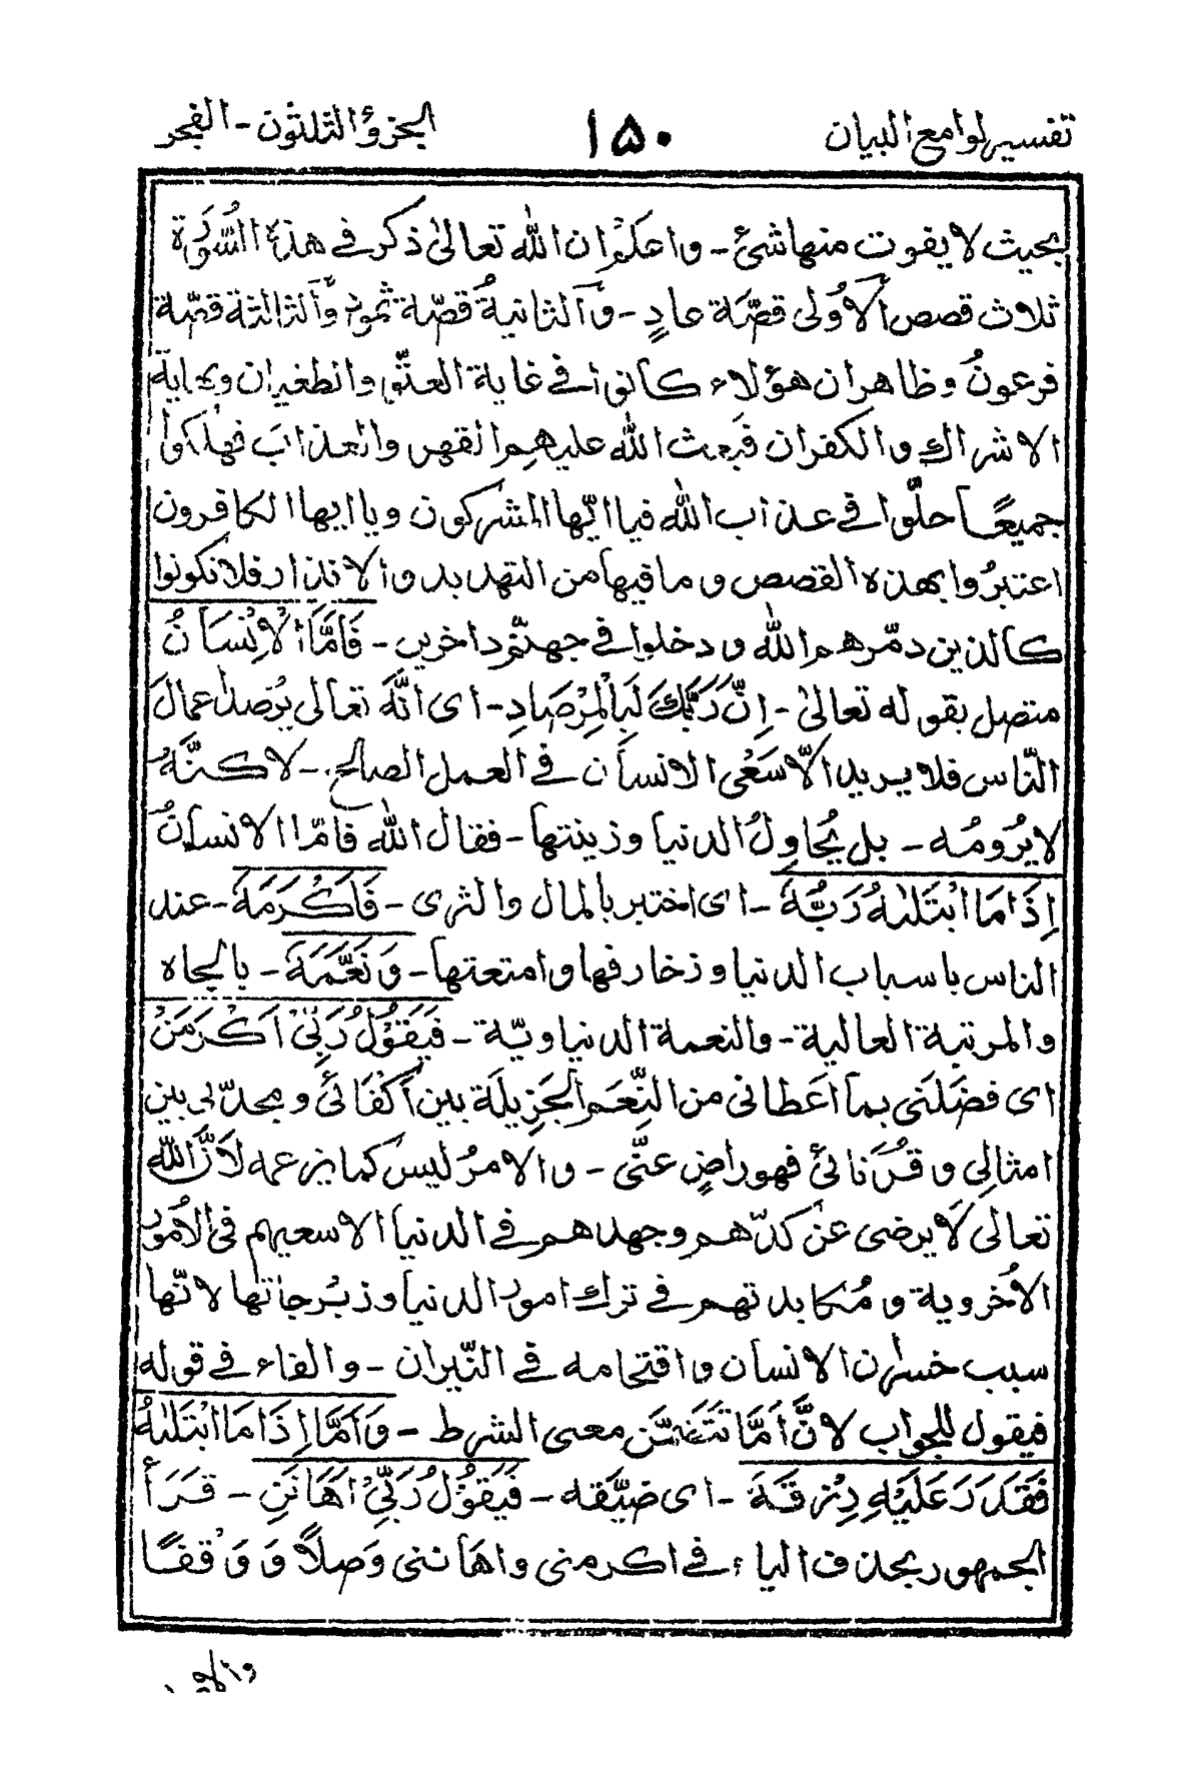 تفسير لوامع البيان ١٥٠ الجزؤ الثلثون - الفجر
بحيث لا يفوت منها شئ - واعلم ان الله تعالىٰ ذكر فى هذه السُّورَة
ثلاث قصص اَلْاُولى قصَّة عادٍ - وَالثانيةُ قصّة ثمود وَالثالثة قصّة
فرعونُ وظاهران هؤلاء كانوا فى غاية العتّو والطغيان ونهاية
الاشراك والكفران فَبعث الله عليهم القهر والعذابَ فهلكوا
جميعًا حلّوا فى عذاب الله فيا ايّها المشركون ويا ايها الكافرون
اعتبرُوا بهذه القصص وما فيها من التهديد والانذار فلا تكونوا
كالذين دمّرهم الله ودخلوا فى جهنّم داخرين - فَاَمَّا الْاِنْسَانُ
متصل بقوله تعالىٰ - اِنَّ رَبَّكَ لَبِالْمِرْصَادِ - اى انَّهَ تعالى يُرصد اعمالَ
النّاس فلا يريد الّا سَعْى الانسان فى العمل الصالح - لاكنَّهُ
لا يَرُومُه - بل يُحَاوِلُ الدنيا وزينتها - فقال الله فامّا الانسانُ
اِذَا مَا ابْتَلٰىهُ رَبُّهَ - اى اختبر بالمال والثرى - فَاَكْرَمَهَ - عند
الناس باسباب الدنيا وزخارفها وامتعتها - وَنَعَّمَهَ - بالجاه
والمرتبة العالية - والنعمة الدنياويّة - فَيَقُوْلُ رَبِّىْ اَكْرَمَنْ
اى فضلَنى بما اَعَطانى من النِّعَمِ الْجَزِيلَة بين اَكْفَائىْ ومجدّنى بين
امثالِى وقُرَنائىْ فهو راضٍ عنّى - والامرُ ليسَ كما يزعمه لاَنَّ اللهَ
تعالى لَا يرضى عنْ كدّهم وجهدهم فى الدنيا الا سعيهم فى الامُور
الاُخروية ومُكابدتهم فى ترك امور الدنيا وزبْرجاتها لانّها
سبب خسران الانسان واقتحامه فى النّيران - والفاء فى قوله
فيقول للجواب لانَّ اَمَّا تَتَضمَّن معنى الشرط - وَاَمَّا اِذَا مَا ابْتَلٰىهُ
فَقَدَرَ عَلَيْهِ رِزْقَهَ - اى ضيَّقه - فَيَقُوْلُ رَبِّىْ اَهَانَنِ - قَرَأ
الجمهور بحذف الياء فى اكرمنى واهاننى وَصلًا وَوَقفًا